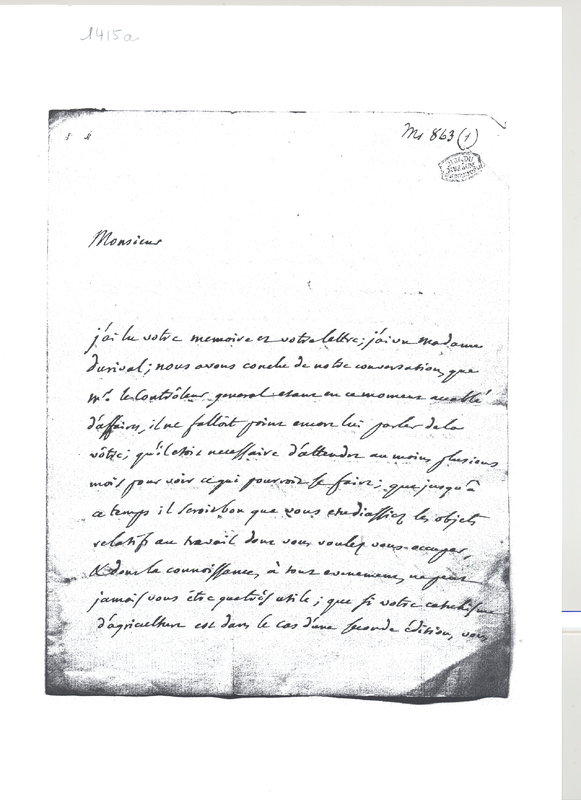 1415a
Ms 863 (1)
Monsieur
j'ai lu votre memoire et votre lettre; j'ai vu madame
durival; nous avons conclu de notre conversation, que
mr. le Contrôleur general etant en ce moment accablé
d'affaires, il ne falloit point encore lui parler de la
vôtre; qu'il etoit necessaire d'attendre au moins plusieurs
mois pour voir ce qui pourroit se faire; que jusqu'à
ce temps il seroit bon que vous etudiassiez les objets
relatifs au travail dont vous voulez vous occuper,
& dont la connoissance, à tout evenement, ne peut
jamais vous être que très utile; que si votre catechisme
d'agriculture est dans le cas d'une seconde édition, vous